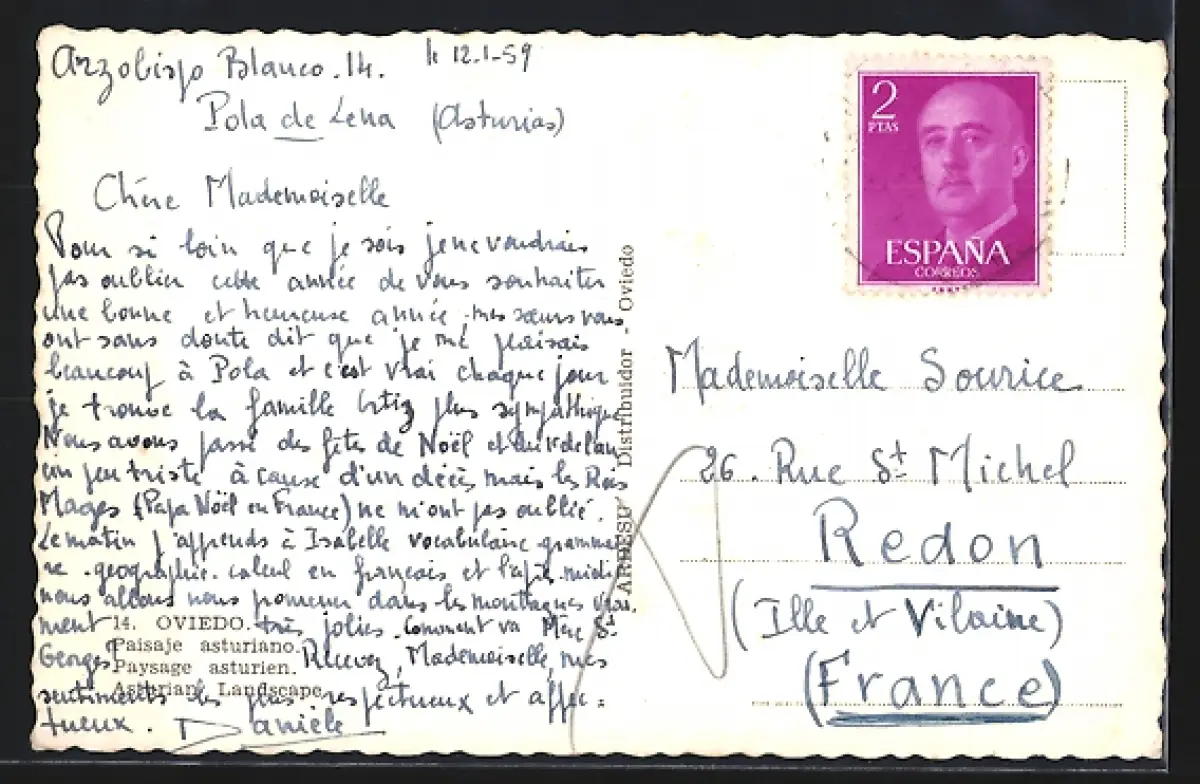 Arzobispo Blanco. 14. le 12-1-59
Pola de Lena (Asturias)
Chère Mademoiselle
Pour si loin que je sois je ne voudrais
pas oublier cette année de vous souhaiter
une bonne et heureuse année, mes sœurs vous
ont sans doute dit que je me plaisais
beaucoup à Pola et c'est vrai chaque jour
je trouve la famille Ortiz plus sympathique
Nous avons passé des fête de Noël et
un peu triste à cause d'un décès, mais les Rois
Mages (Papa Noël en France) ne m'ont pas oublié.
Le matin j'apprends à Isabelle vocabulaire grammai
re. géographie. calcul en français et l'après midi
nous allons nous promener dans les montagnes vrai.
ment très jolies. Comment va Mère St
Georges Recevez, Mademoiselle, mes
sentiments les plus respectueux et affec=
tueux. Danièle
14. OVIEDO.
Paisaje asturiano.
Paysage asturien.
Asturian Landscape.
ARDESU Distribuidor - Oviedo
2
PTAS
ESPAÑA
CORREOS
Mademoiselle Sourice
26. Rue St Michel
Redon
(Ille et Vilaine)
(France)